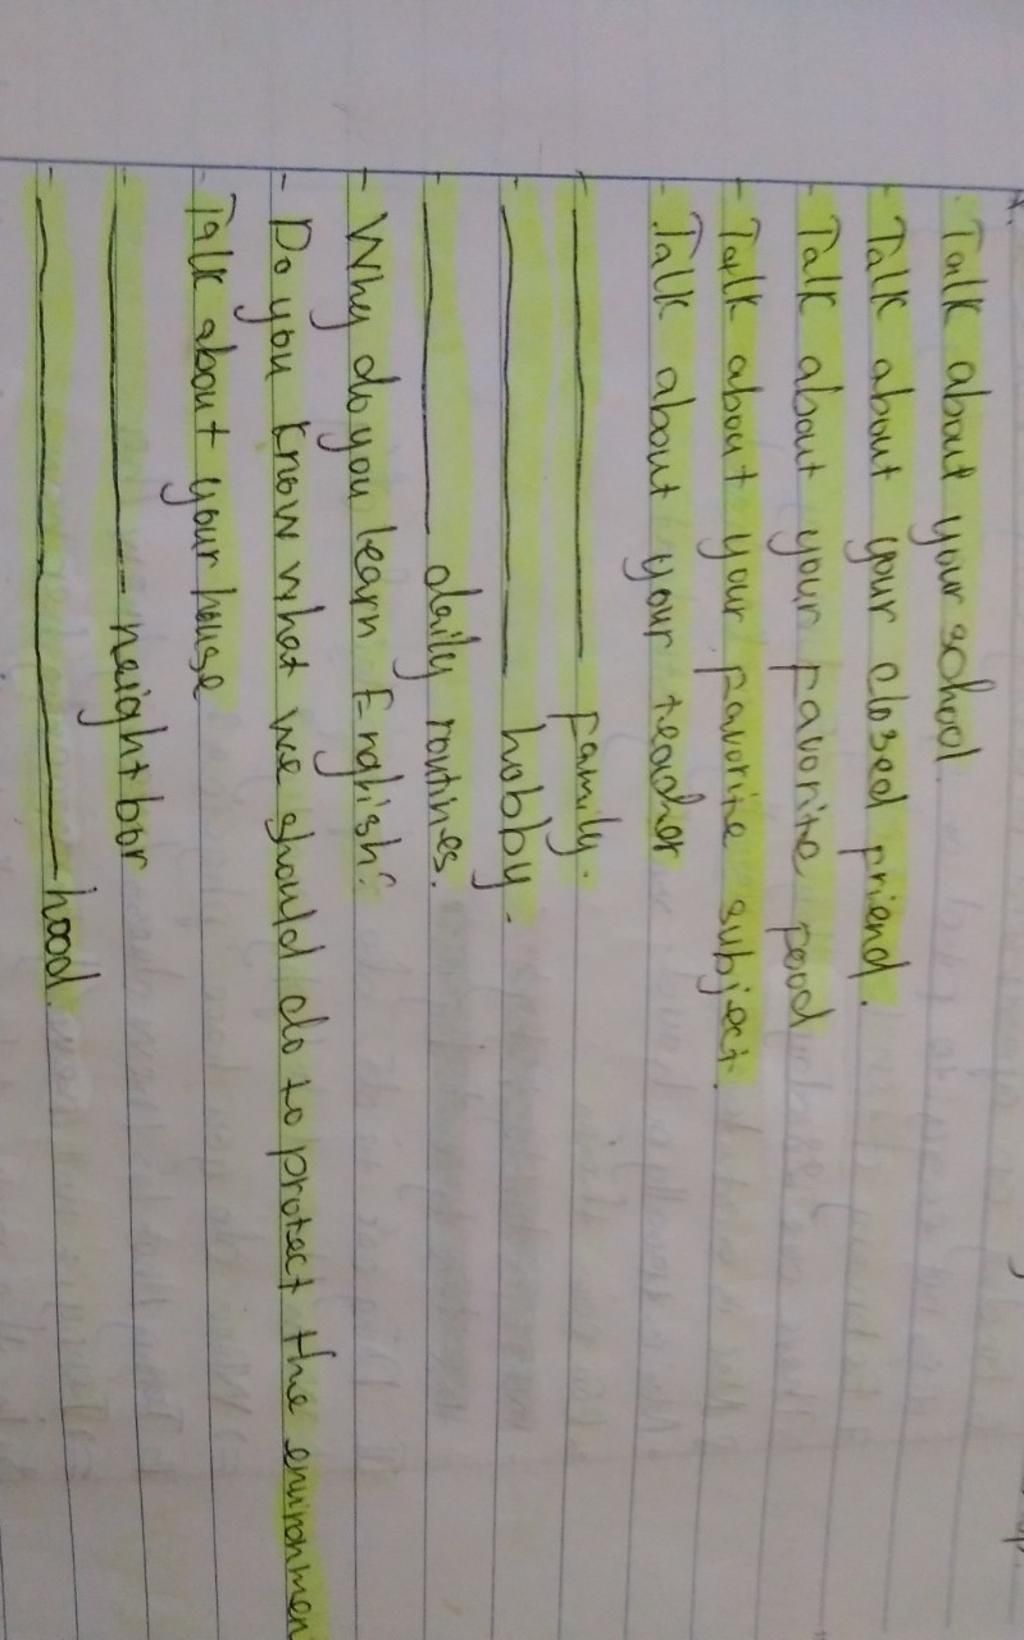 - Talk about your school
- Talk about your closed friend.
- Talk about your favorite food
- Talk about your favorite subject.
- Talk about your teacher
- ——— family.
- ——— hobby.
- ——— daily routines.
- Why do you learn English?
- Do you know what we should do to protect the environmen
- Talk about your house
- ——— neightbor
- ——— hood.